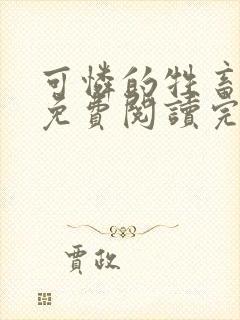 可憐的牲畜
免費閱讀完
賈政